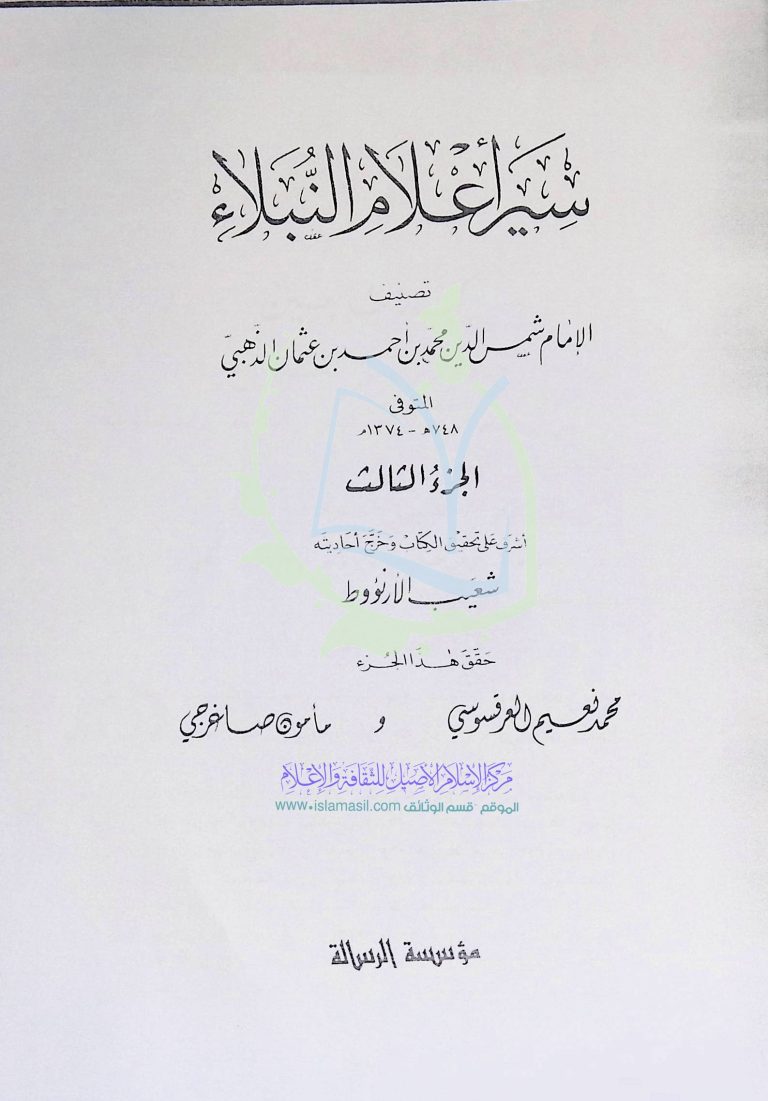 سِيَر أَعْلَامِ النُّبَلَاءِ
تصنيف
الإمام شمس الدين محمد بن أحمد بن عثمان الذهبي
المتوفى
٧٤٨هـ - ١٣٧٤م
الجزء الثالث
أشرف على تحقيق الكتاب وخرج أحاديثه
شعيب الأرنؤوط
حقق هذا الجزء
محمد نعيم العرقسوسي و مأمون صاغرجي
مركز الإسلام الأصيل للثقافة والإعلام
الموقع - قسم الوثائق www.islamasil.com
مؤسسة الرسالة